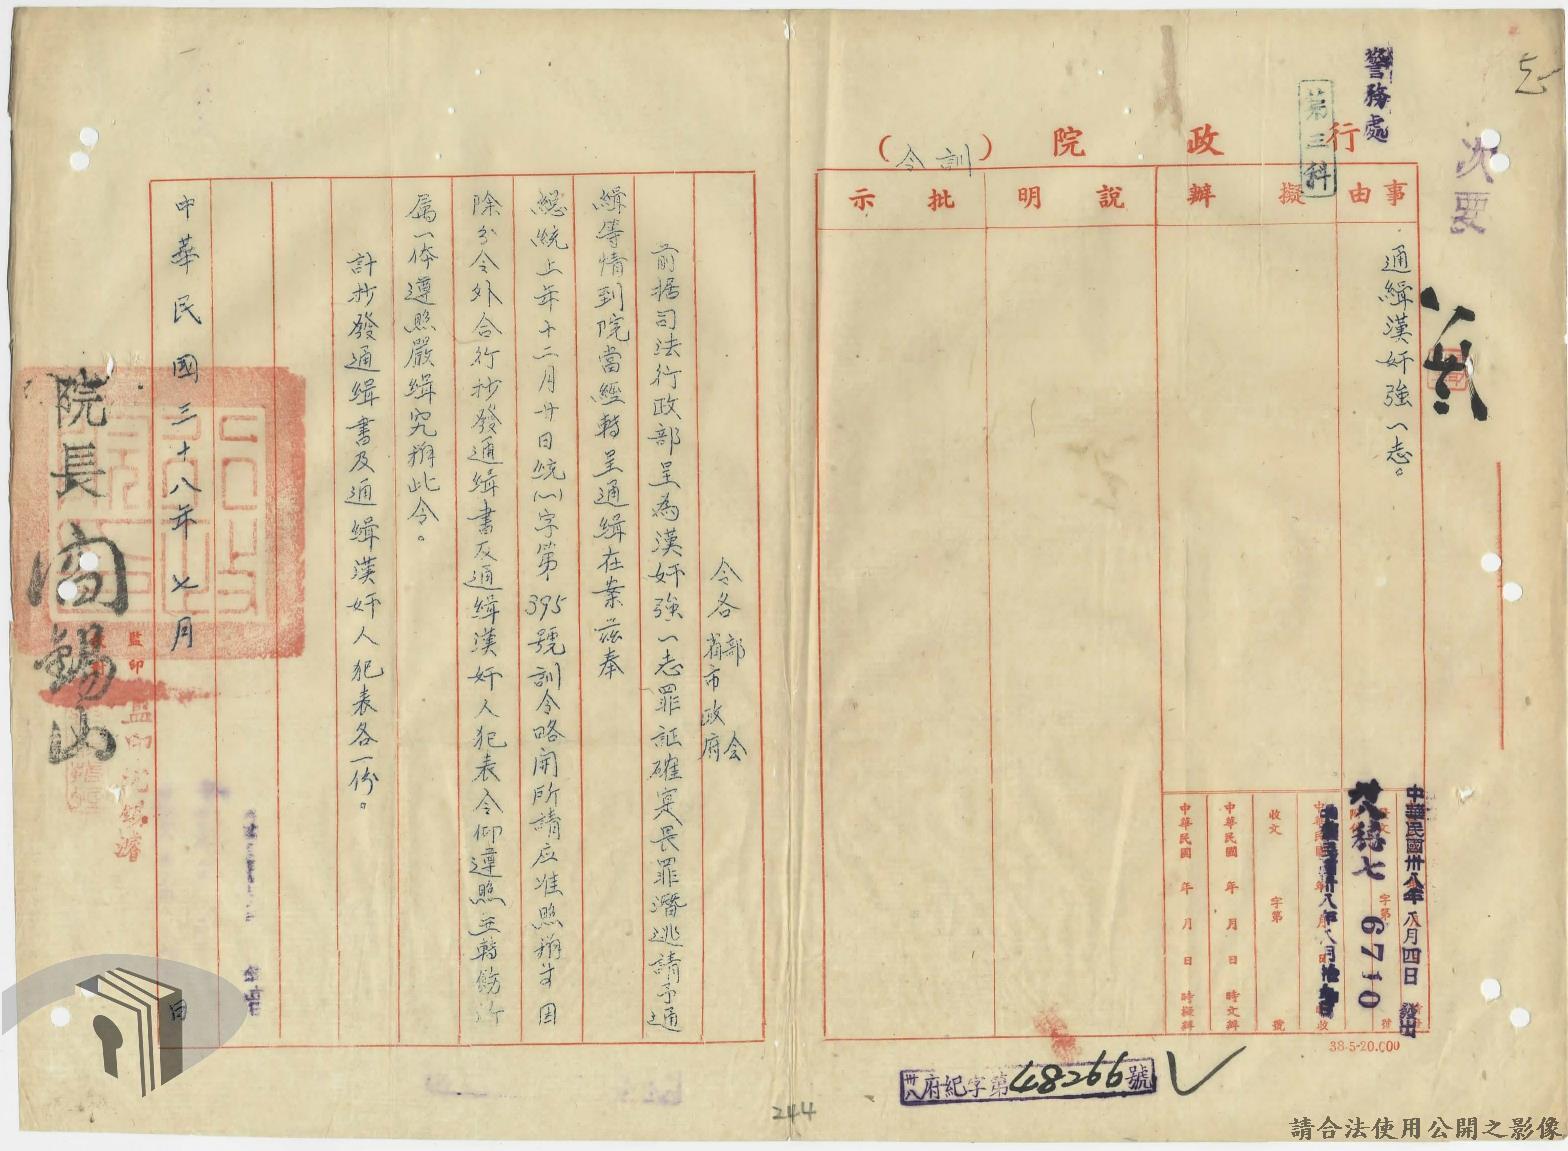 警務處
第三科
次要
行政院（訓令）
事由
擬辦
說明
批示
通緝漢奸強一志。
中華民國卅八年八月四日發出
卅八穗七 6710
收文 字第 號
中華民國 年 月 日 時交辦
中華民國 年 月 日 時擬辦
38-5-20.000
卅八府紀字第48266號
令各部會
省市政府
前据司法行政部呈為漢奸強一志罪証確寔畏罪潛逃請予通
緝等情到院當經轉呈通緝在案茲奉
總統上年十二月廿日統㈠字第395號訓令略開所請应准照辦等因
除分令外合行抄發通緝書及通緝漢奸人犯表令仰遵照並轉飭所
属一体遵照嚴緝究辦此令。
計抄發通緝書及通緝漢奸人犯表各一份。
中華民國三十八年七月 日
院長 閻錫山
監印
244
請合法使用公開之影像